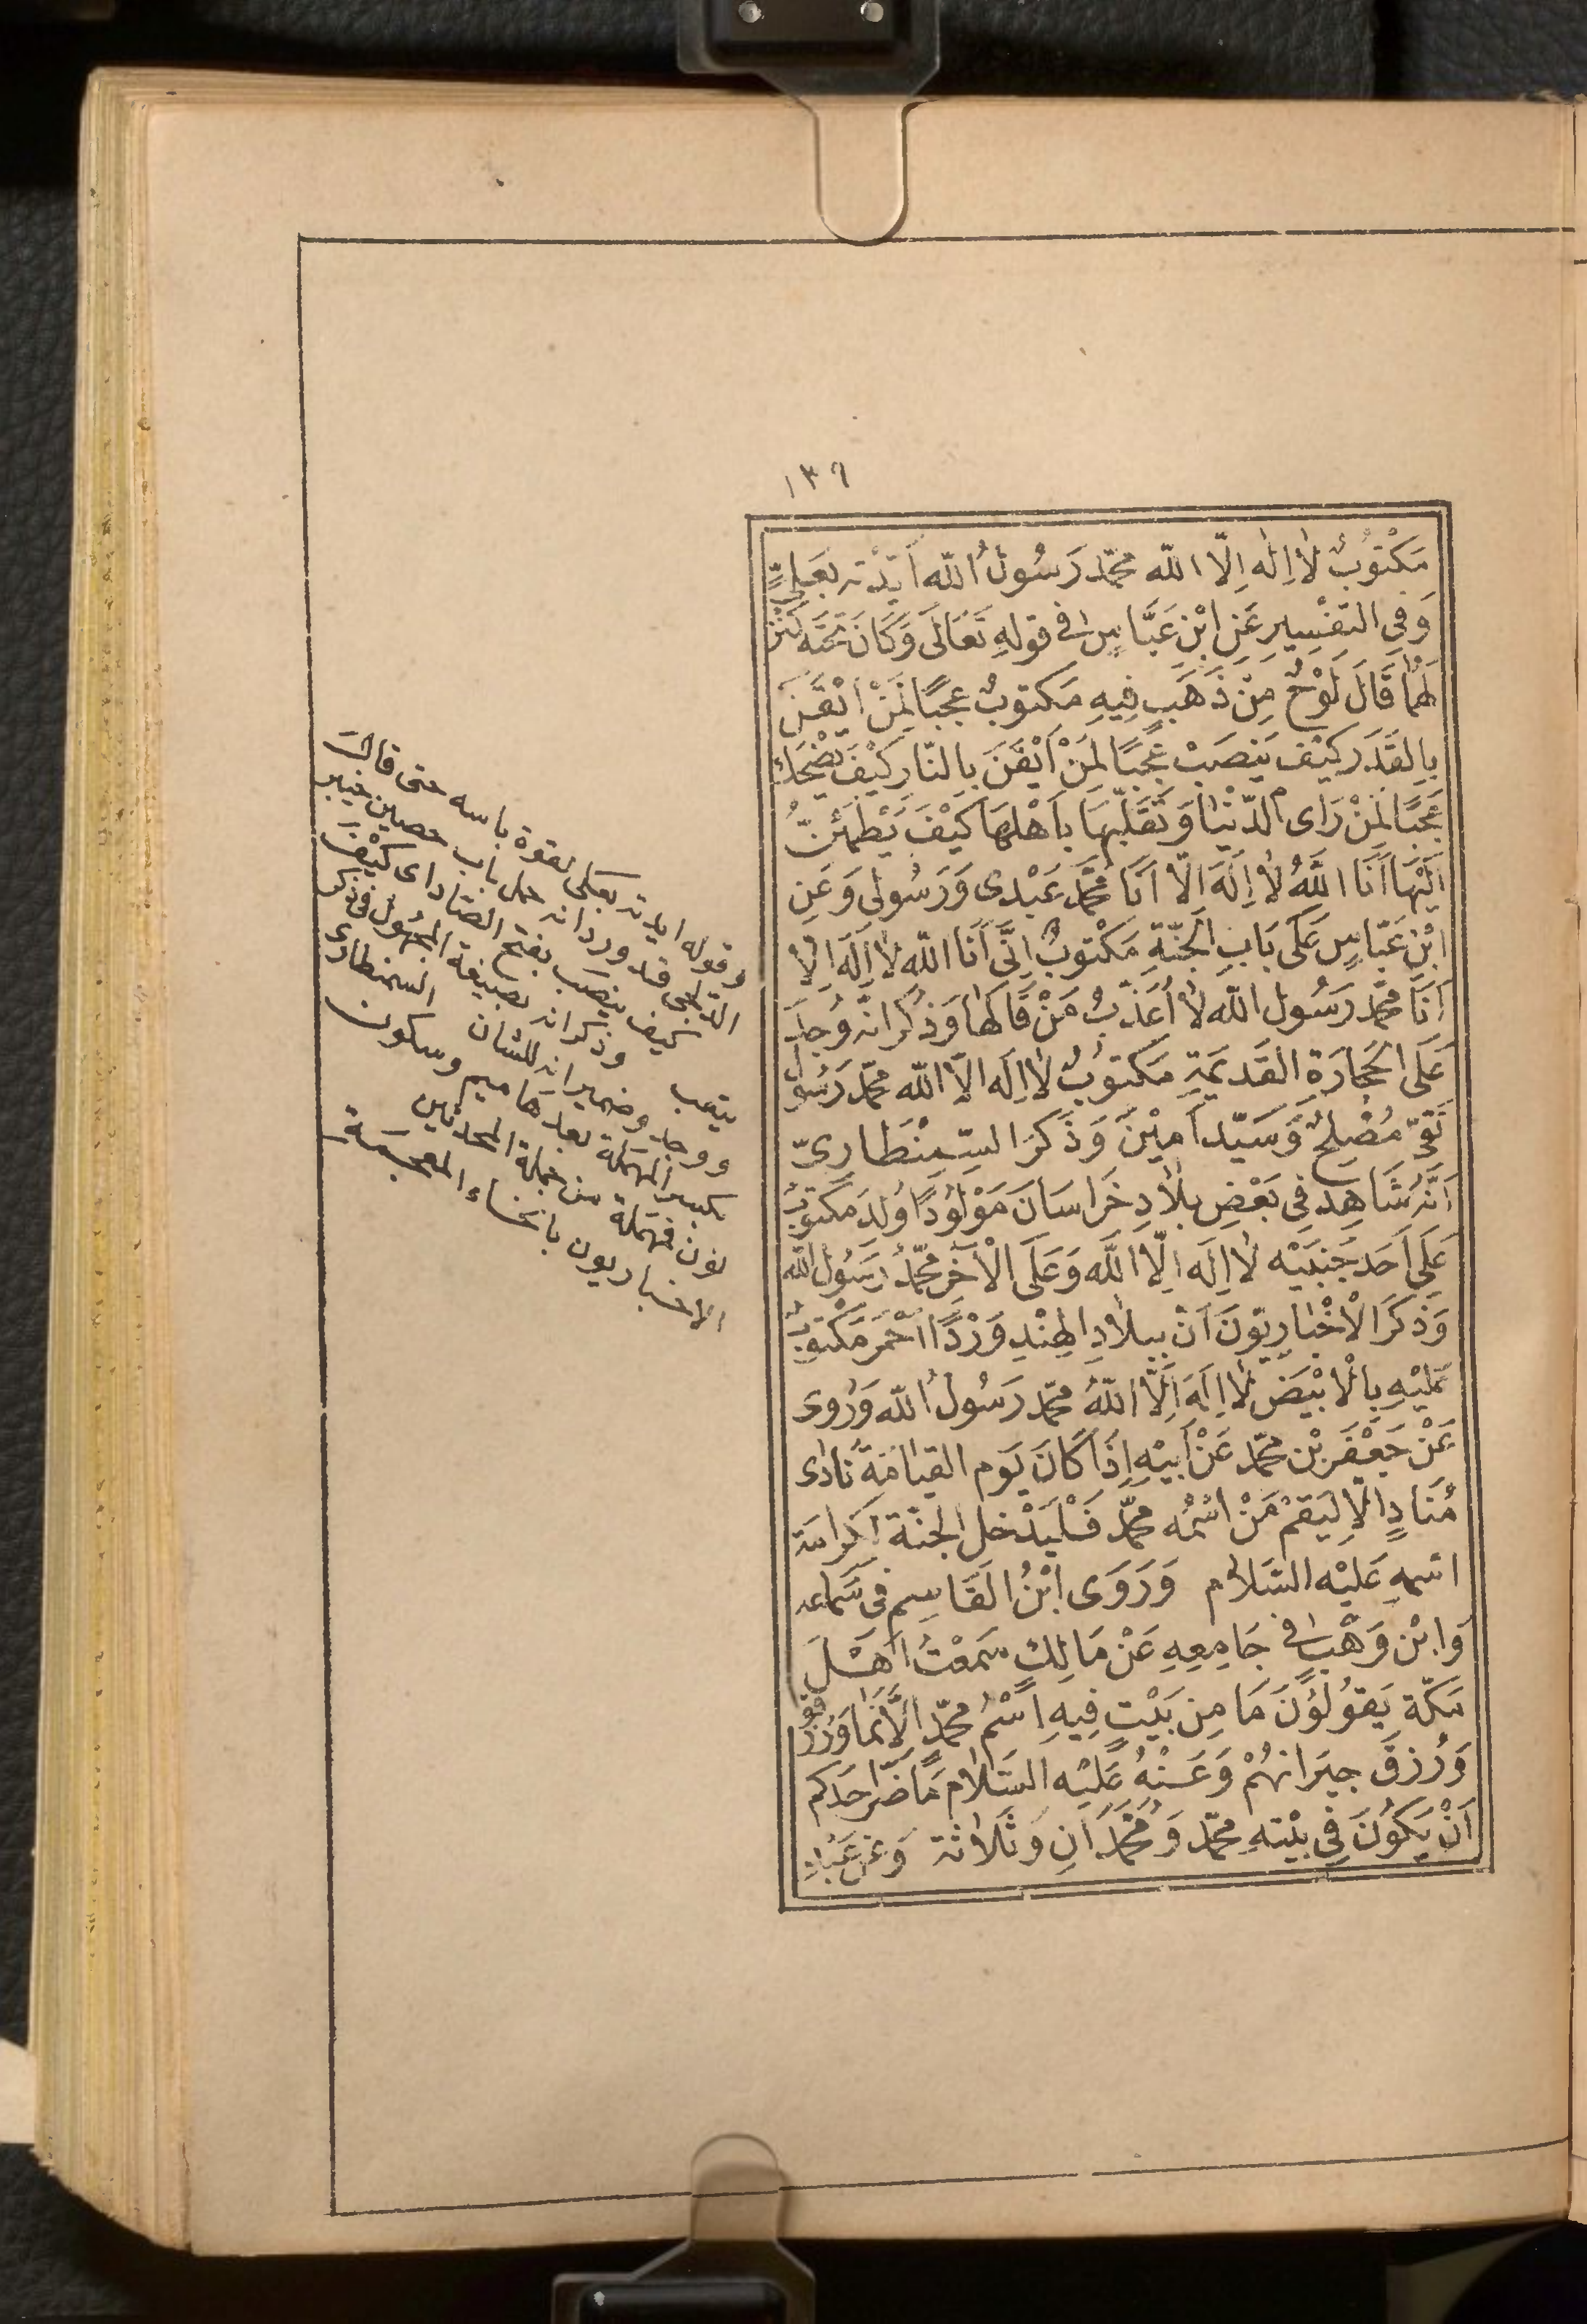 ١٣٩
مَكْتُوبٌ لَا اِلٰه اِلَّا الله محمّد رَسُولُ الله اَيَّدْته بِعَلِيٍّ
وَفِي التفْسِيرِ عَنِ ابْنِ عَبَّاسٍ فى قولهِ تَعَالَى وَكَانَ تَحْتَه كَنْزٌ
لَهُمَا قَالَ لَوْحٌ مِنْ ذَهَبٍ فِيهِ مَكتوبٌ عجبًا لِمَنْ اَيْقَنَ
بِالقَدَرِ كَيْف يَنْصَبُ عَجَبًا لِمَنْ اَيْقَنَ بِالنّارِ كَيْفَ يَضْحَكُ
عَجَبًا لِمَنْ رَاى الدّنْيَا وَتَقَلّبَهَا بِاَهْلِهَا كَيْفَ يَطْمَئِنُّ
اِلَيْهَا اَنَا اللَّهُ لَا اِلَهَ اِلّا اَنَا مُحَمَّد عَبْدِى وَرَسُولِى وَعَنِ
ابْنِ عَبّاسٍ عَلَى بَابِ الجَنّةِ مَكْتوبٌ اِنَّى اَنَا الله لا اِلَهَ اِلا
اَنَا محمّد رَسُول الله لا اُعَذّبُ مَنْ قَالَهَا وَذُكِرَ انّه وُجِدَ
عَلَى الحِجَارَةِ القَدِيمَةِ مَكتوبٌ لَا اِلَه الّا الله محمّد رَسُول
تَقىّ مُصْلِحٌ وَسَيّد اَمِيْنٌ وَذَكَرَ السِّمِنْطَارِىّ
اَنَّهُ شَاهِدَ فِى بَعْضِ بِلَادِ خُرَاسَانَ مَوْلُودًا وُلِدَ مَكتُوبٌ
عَلَى اَحَدِ جَنبَيْه لَا اِلَه اِلّا اللَّه وَعَلَى الْآخَرِ محمّدُ رَسُول الله
وَذَكَرَ الْاخْبَارِيّونَ اَنّ بِبِلَادِ الهِنْدِ وَرْدًا اَحْمَرَ مَكْتوبٌ
عَلَيْهِ بِالْابْيَضِ لَا اِلَهَ اِلَّا اللَّهُ محمّد رَسُولُ الله وَرُوِى
عَنْ جَعْفَر بْن محمّد عَنْ اَبيْهِ اِذَا كَانَ يَوم القيَامَةِ نَادَى
مُنَادٍ اَلَا لِيَقمْ مَنْ اسْمُه محمّد فَلْيَدْخل الجنّة لِكَرامَة
اسْمهِ عَلَيْه السَّلَام وَرَوَى ابْنُ القَاسِم فِى سَمَاعه
وَابْن وَهْبٍ فى جَامِعِهِ عَنْ مَالِكٍ سَمعْتُ اَهْلَ
مَكّة يَقوُلُونَ مَا مِن بَيْتٍ فِيهِ اسْمُ محمّدٍ اِلَّا نَمَا وَرُزِقُوا
وَرُزِقَ جِيَرانهُمْ وَعَنْهُ عَلَيْه السّلَام مَا ضَرّ احَدكم
اَنْ يَكُونَ فِى بَيْتهِ محمّد وَمُحَمّدَانِ وَثَلَاثَة وَعَنْ عَبْدِ
وقوله ايدته بعلى لقوة باسه حتى قالت
قد ورد انه حمل باب حصن خيبر
كيف ينصب بفتح الصّاد اى كَيْفَ
يتعب وذكر انه بصيغة المجهُول فى ذكر
ووجد وضمير انه للشان السمنطارى
بكسر المهملة بعدها ميم وسكون
نون فمهملة من جملة المحدثين
الاخباريون بالخاء المعجمَة